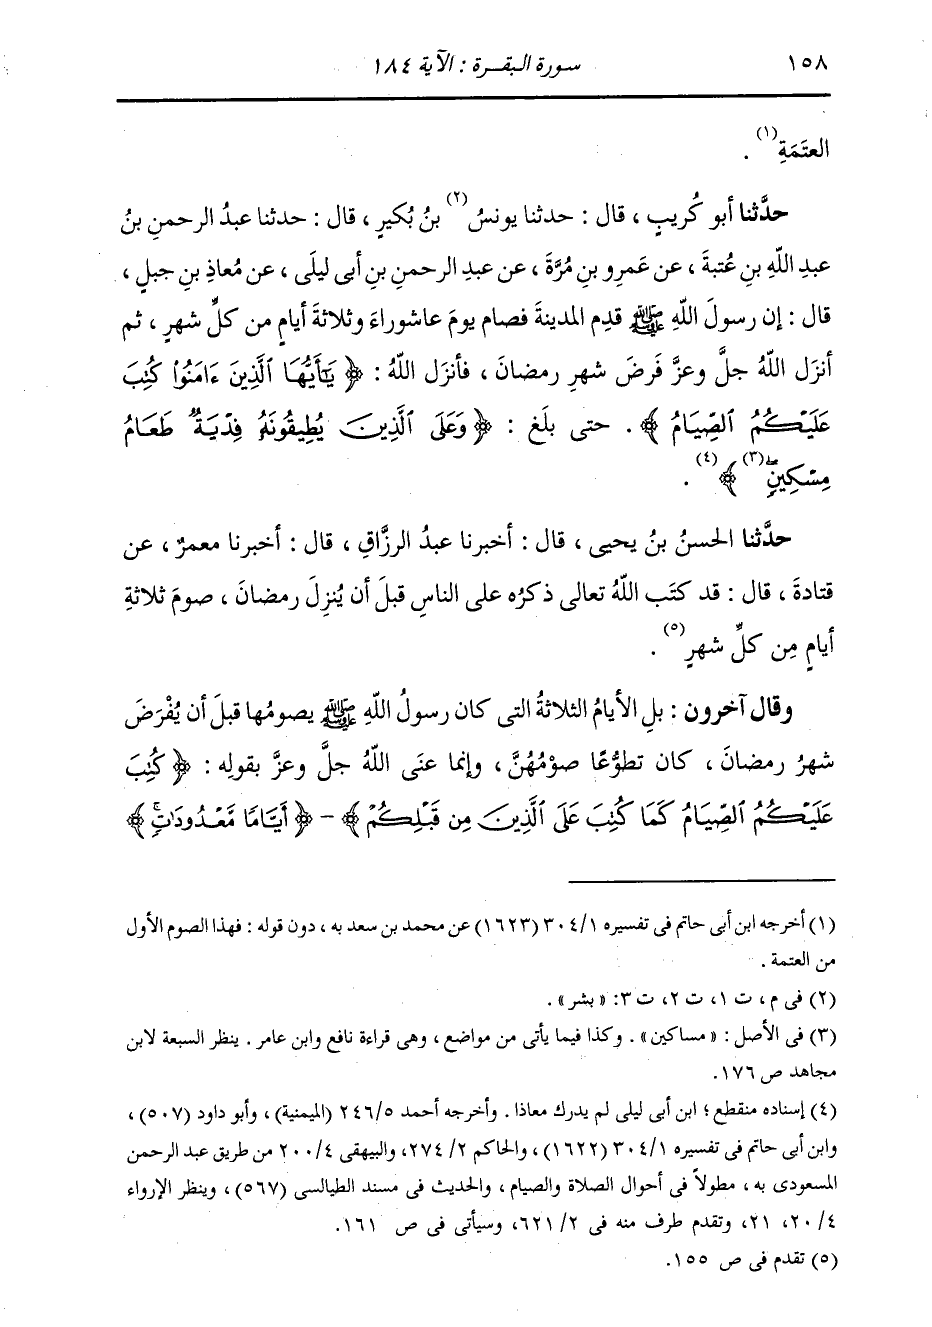 ١٥٨
سورة البقرة : الآية ١٨٤
العتَمَةِ(١) .
حدَّثنا أبو كُريبٍ ، قال : حدثنا يونسُ(٢) بنُ بُكيرٍ ، قال : حدثنا عبدُ الرحمنِ بنُ
عبدِ اللَّهِ بنِ عُتبةَ ، عن عَمرِو بنِ مُرَّةَ ، عن عبدِ الرحمنِ بنِ أبى ليلَى ، عن مُعاذِ بنِ جبلٍ ،
قال : إن رسولَ اللَّهِ ﷺ قدِم المدينةَ فصام يومَ عاشوراءَ وثلاثةَ أيامٍ من كلِّ شهرٍ ، ثم
أنزَل اللَّهُ جلَّ وعزَّ فَرضَ شهرِ رمضانَ ، فأنزَل اللَّهُ : ﴿ يَٰٓأَيُّهَا ٱلَّذِينَ ءَامَنُوا۟ كُتِبَ
عَلَيْكُمُ ٱلصِّيَامُ ﴾ . حتى بلَغ : ﴿ وَعَلَى ٱلَّذِينَ يُطِيقُونَهُۥ فِدْيَةٌ طَعَامُ
مِسْكِينٍۖ(٣) ﴾(٤) .
حدَّثنا الحسنُ بنُ يحيى ، قال : أخبرنا عبدُ الرزَّاقِ ، قال : أخبرنا معمرٌ ، عن
قتادةَ ، قال : قد كتَب اللَّهُ تعالى ذكرُه على الناسِ قبلَ أن يُنزِلَ رمضانَ ، صومَ ثلاثةِ
أيامٍ مِن كلِّ شهرٍ(٥) .
وقال آخرون : بلِ الأيامُ الثلاثةُ التى كان رسولُ اللَّهِ ﷺ يصومُها قبلَ أن يُفْرَضَ
شهرُ رمضانَ ، كان تطوُّعًا صوْمُهُنَّ ، وإنما عنَى اللَّهُ جلَّ وعزَّ بقولِه : ﴿ كُتِبَ
عَلَيْكُمُ ٱلصِّيَامُ كَمَا كُتِبَ عَلَى ٱلَّذِينَ مِن قَبْلِكُمْ ﴾ - ﴿ أَيَّامًا مَّعْدُودَٰتٍۚ ﴾
(١) أخرجه ابن أبى حاتم فى تفسيره ٣٠٤/١ (١٦٢٣) عن محمد بن سعد به ، دون قوله : فهذا الصوم الأول
من العتمة .
(٢) فى م ، ت ١، ت ٢، ت ٣: « بشر » .
(٣) فى الأصل : « مساكين » . وكذا فيما يأتى من مواضع ، وهى قراءة نافع وابن عامر . ينظر السبعة لابن
مجاهد ص ١٧٦.
(٤) إسناده منقطع ؛ ابن أبى ليلى لم يدرك معاذا . وأخرجه أحمد ٢٤٦/٥ (الميمنية) ، وأبو داود (٥٠٧) ،
وابن أبى حاتم فى تفسيره ٣٠٤/١ (١٦٢٢) ، والحاكم ٢٧٤/٢، والبيهقى ٢٠٠/٤ من طريق عبد الرحمن
المسعودى به ، مطولًا فى أحوال الصلاة والصيام ، والحديث فى مسند الطيالسى (٥٦٧) ، وينظر الإرواء
٢٠/٤، ٢١، وتقدم طرف منه فى ٦٢١/٢، وسيأتى فى ص ١٦١.
(٥) تقدم فى ص ١٥٥.